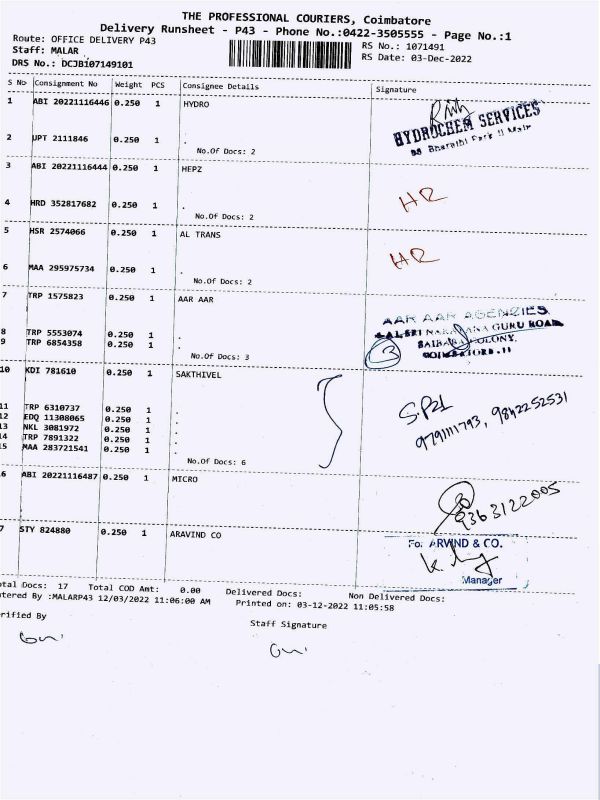 THE PROFESSIONAL COURIERS, Coimbatore
Delivery Runsheet - P43 - Phone No.:0422-3505555 - Page No.:1
Route: OFFICE DELIVERY P43
RS No.: 1071491
Staff: MALAR
RS Date: 03-Dec-2022
DRS No.: DCJB107149101
S No Consignment No Weight PCS Consignee Details Signature
1 ABI 20221116446 0.250 1 HYDRO
HYDROCHEM SERVICES
98 Bharathi Park II Main
2 UPT 2111846 0.250 1 .
No.Of Docs: 2
3 ABI 20221116444 0.250 1 HEPZ
HR
4 HRD 352817682 0.250 1 .
No.Of Docs: 2
5 HSR 2574066 0.250 1 AL TRANS
HR
6 MAA 295975734 0.250 1 .
No.Of Docs: 2
7 TRP 1575823 0.250 1 AAR AAR
AAR AAR AGENZIES
NARAYANA GURU ROAD
SAIBABA COLONY,
COIMBATORE.11
3
8 TRP 5553074 0.250 1 .
9 TRP 6854358 0.250 1 .
No.Of Docs: 3
10 KDI 781610 0.250 1 SAKTHIVEL
11 TRP 6310737 0.250 1 .
12 EDQ 11308065 0.250 1 .
13 NKL 3081972 0.250 1 .
14 TRP 7891322 0.250 1 .
15 MAA 283721541 0.250 1 .
9791111793, 9842252531
No.Of Docs: 6
6 ABI 20221116487 0.250 1 MICRO
9363122005
7 STY 824880 0.250 1 ARAVIND CO
For ARVIND & CO.
Manager
otal Docs: 17 Total COD Amt: 0.00 Delivered Docs: Non Delivered Docs:
ntered By :MALARP43 12/03/2022 11:06:00 AM Printed on: 03-12-2022 11:05:58
erified By
Staff Signature